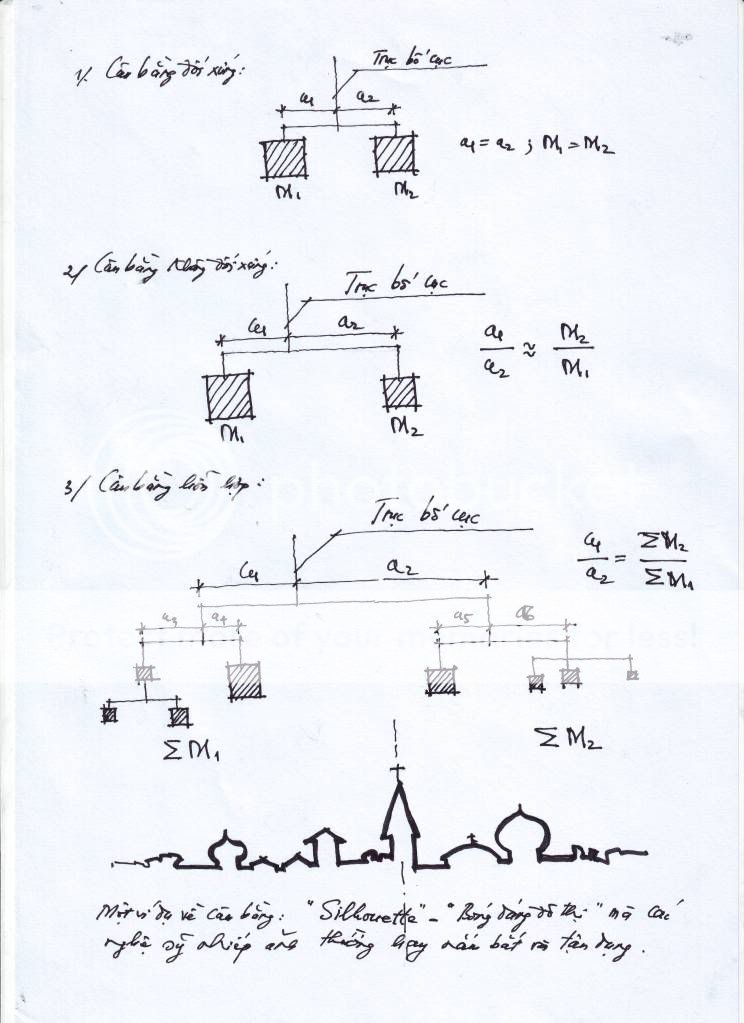 1/. Cân bằng đối xứng:
Trục bố cục
a1 a2
M1 M2
a1 = a2 ; M1 = M2
2/ Cân bằng không đối xứng:
Trục bố cục
a1 a2
M1 M2
a1/a2 ≈ M2/M1
3/ Cân bằng hỗn hợp:
Trục bố cục
a1 a2
a1/a2 = ΣM2/ΣM1
a3 a4 a5 a6
Protect more of your memories for less!
photobucket
ΣM1 ΣM2
Một ví dụ về Cân bằng: "Silhouette" - "Bóng dáng đô thị" mà các
nghệ sỹ nhiếp ảnh thường hay nắm bắt và tận dụng.